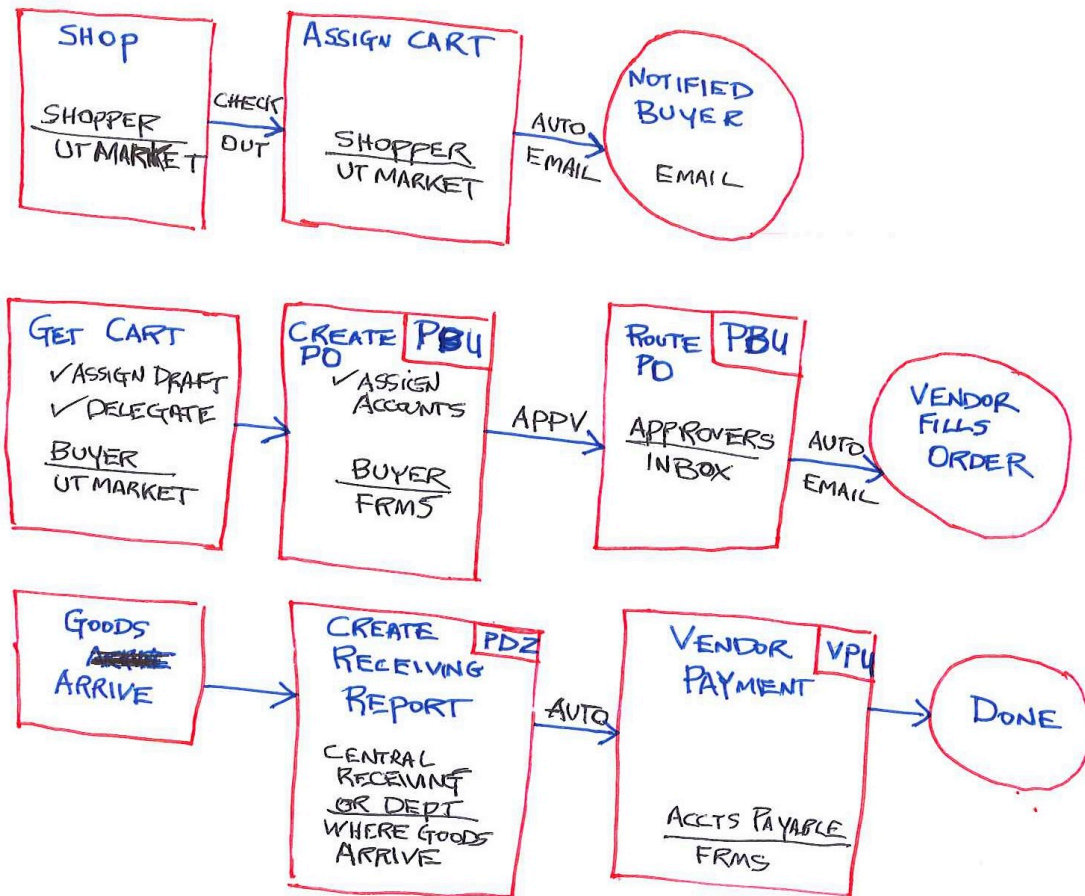 SHOP
SHOPPER
UT MARKET
CHECK
OUT
ASSIGN CART
SHOPPER
UT MARKET
AUTO
EMAIL
NOTIFIED
BUYER
EMAIL
GET CART
✓ASSIGN DRAFT
✓DELEGATE
BUYER
UT MARKET
CREATE
PO
PBU
✓ASSIGN
ACCOUNTS
BUYER
FRMS
APPV
ROUTE
PO
PBU
APPROVERS
INBOX
AUTO
EMAIL
VENDOR
FILLS
ORDER
GOODS
ARRIVE
CREATE
RECEIVING
REPORT
PDZ
CENTRAL
RECEIVING
OR DEPT
WHERE GOODS
ARRIVE
AUTO
VENDOR
PAYMENT
VPU
ACCTS PAYABLE
FRMS
DONE